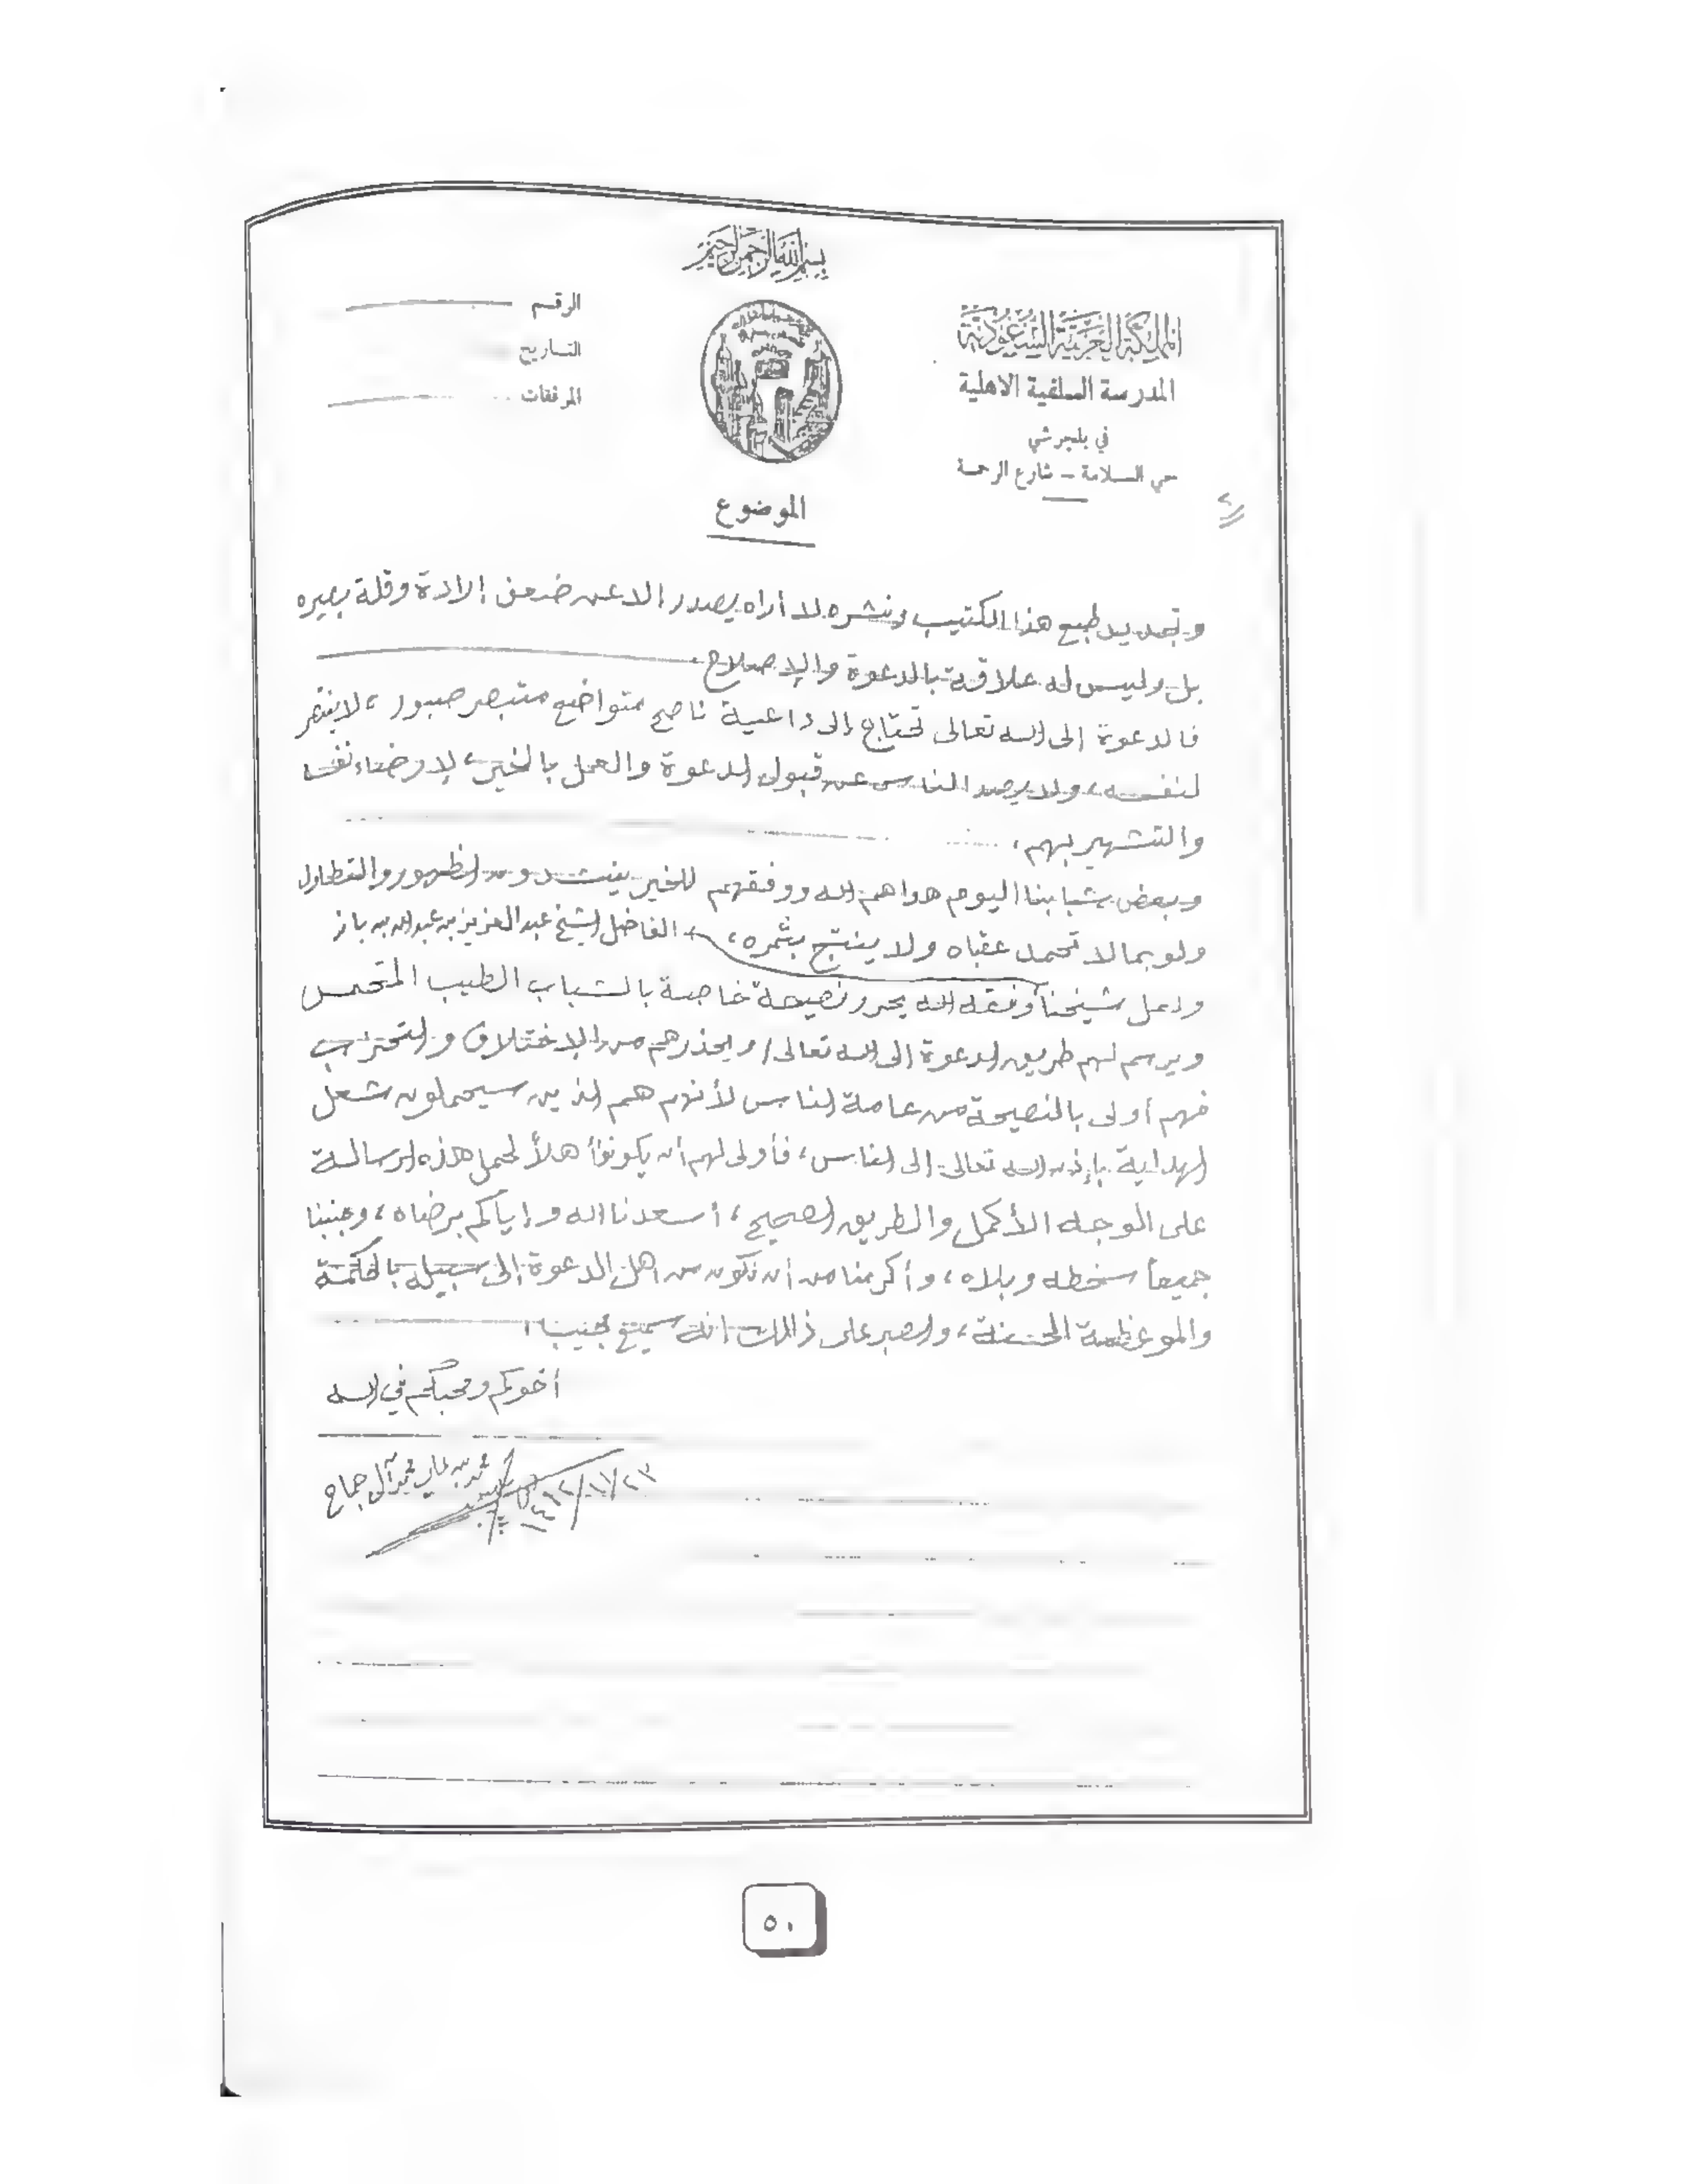 بسم الله الرحمن الرحيم
المملكة العربية السعودية
المدرسة السلفية الاهلية
في بلجرشي
حي السلامة - شارع الرحمة
الرقم
التاريخ
المرفقات
٢
الموضوع
وتجديد طبع هذا الكتيب ونشره لا أراه يصدر الا عن ضعف إرادة وقلة بصيره
بل وليس له علاقة بالدعوة والإصلاح.
فالدعوة إلى الله تعالى تحتاج إلى داعية ناصح متواضع متبصر صبور، لا ينتصر
لنفسه، ولا يصد الناس عن قبول الدعوة والعمل بالخير، لإرضاء نفسه
والتشهير بهم،
وبعض شبابنا اليوم هداهم الله ووفقهم للخير ينشدون الظهور والتطاول
ولو بما لا تحمد عقباه ولا ينتج بثمره، الفاضل الشيخ عبد العزيز بن عبد الله بن باز
ولعل شيخنا وفقه الله يحرر نصيحة خاصة بالشباب الطيب المتحمس
ويرسم لهم طريق الدعوة إلى الله تعالى/ ويحذرهم من الإختلاف والتحزب
فهم أولى بالنصيحة من عامة الناس لأنهم هم الذين سيحملون شعل
الهداية بإذن الله تعالى إلى الناس، فأولى لهم أن يكونوا أهلاً لحمل هذه الرسالة
على الوجه الأكمل والطريق الصحيح، أسعدنا الله وإياكم برضاه، وجنبنا
جميعاً سخطه وبلاه، وأكرمنا من أن نكون من اهل الدعوة إلى سبيله بالحكمة
والموعظة الحسنة، والصبر على ذالك انه سميع مجيب،
أخوكم ومحبكم في الله
محمد بن علي محمد آل جماح
٥٠